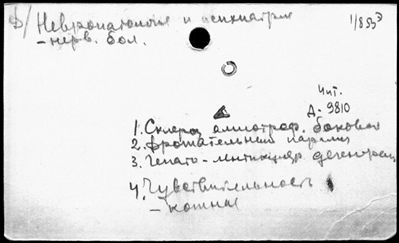 Ф/ Невропатология и психиатрия 1/8 53э
- нерв. бол.
Чит.
Д-9810
1. Склероз амиотроф. боковой
2. Дрожательный паралич
3. Гепато-лентикуляр. дегенерац
4. Чувствительность
- кожная